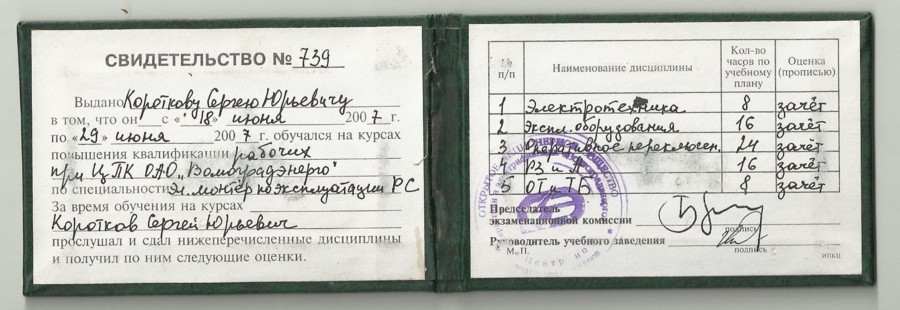 СВИДЕТЕЛЬСТВО № 739
Выдано Короткову Сергею Юрьевичу
в том, что он с «18» июня 2007 г.
по «29» июня 2007 г. обучался на курсах
повышения квалификации рабочих
при ЦПК ОАО „Волгоградэнерго"
по специальности Эл. монтер по эксплуатации РС
За время обучения на курсах
Коротков Сергей Юрьевич
прослушал и сдал нижеперечисленные дисциплины
и получил по ним следующие оценки.
№ п/п Наименование дисциплины Кол-во часов по учебному плану Оценка (прописью)
1 Электротехника 8 зачёт
2 Экспл. оборудования 16 зачёт
3 Оперативное переключен. 24 зачёт
4 РЗ и А 16 зачёт
5 ОТ и ТБ 8 зачёт
Председатель
экзаменационной комиссии
подпись
Руководитель учебного заведения
М. П. подпись
ипкц
ОТКРЫТОЕ АКЦИОНЕРНОЕ ОБЩЕСТВО
Центр по